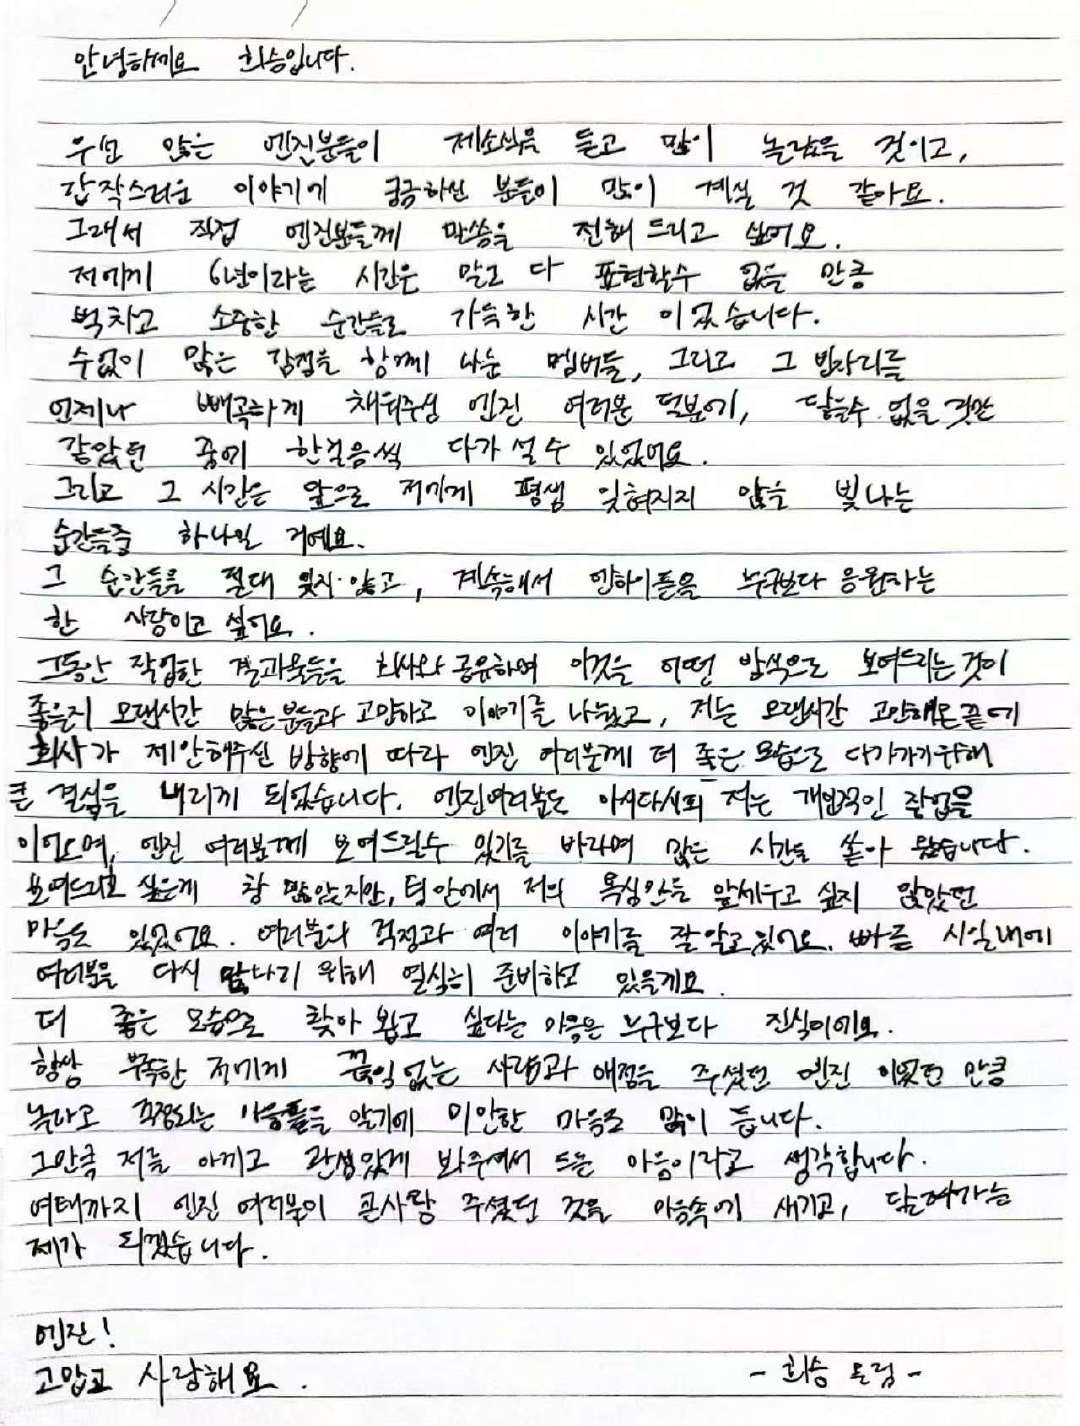 안녕하세요 희승입니다.
우선 많은 엔진분들이 제소식을 듣고 많이 놀랐을 것이고,
갑작스러운 이야기에 궁금하신 분들이 많이 계실 것 같아요.
그래서 직접 엔진분들께 말씀을 전해 드리고 싶어요.
저에게 6년이라는 시간은 말로 다 표현할수 없을 만큼
벅차고 소중한 순간들로 가득한 시간 이었습니다.
수없이 많은 감정을 함께 나눈 멤버들, 그리고 그 빈자리를
언제나 빼곡하게 채워주신 엔진 여러분 덕분에, 닿을수 없을 것만
같았던 꿈에 한걸음씩 다가 설 수 있었어요.
그리고 그 시간은 앞으로 저에게 평생 잊혀지지 않을 빛나는
순간들중 하나일 거예요.
그 순간들을 절대 잊지 않고, 계속해서 엔하이픈을 누구보다 응원하는
한 사람이고 싶어요.
그동안 작업한 결과물들을 회사와 공유하며 이것을 어떤 방식으로 보여드리는것이
좋을지 오랜시간 많은분들과 고민하고 이야기를 나눴고, 저는 오랜시간 고민해온끝에
회사가 제안해주신 방향에 따라 엔진 여러분께 더 좋은 모습으로 다가가기위해
큰 결심을 내리게 되었습니다. 엔진여러분도 아시다시피 저는 개인적인 작업을
이어오며, 엔진 여러분께 보여드릴수 있기를 바라며 많은 시간을 쏟아 왔습니다.
보여드리고 싶은게 참 많았지만, 팀 안에서 저의 욕심만을 앞세우고 싶지 않았던
마음도 있었어요. 여러분의 걱정과 여러 이야기를 잘 알고 있어요. 빠른 시일내에
여러분을 다시 만나기 위해 열심히 준비하고 있을게요.
더 좋은 모습으로 찾아 뵙고 싶다는 마음은 누구보다 진심이에요.
항상 부족한 저에게 끊임없는 사랑과 애정을 주셨던 엔진 이었던 만큼
놀라고 걱정되는 마음들을 알기에 미안한 마음도 많이 듭니다.
그만큼 저를 아끼고 관심있게 봐주셔서 드는 마음이라고 생각합니다.
여태까지 엔진 여러분이 큰사랑 주셨던 것을 마음속에 새기고, 달려가는
제가 되겠습니다.
엔진!
고맙고 사랑해요. - 희승 드림 -